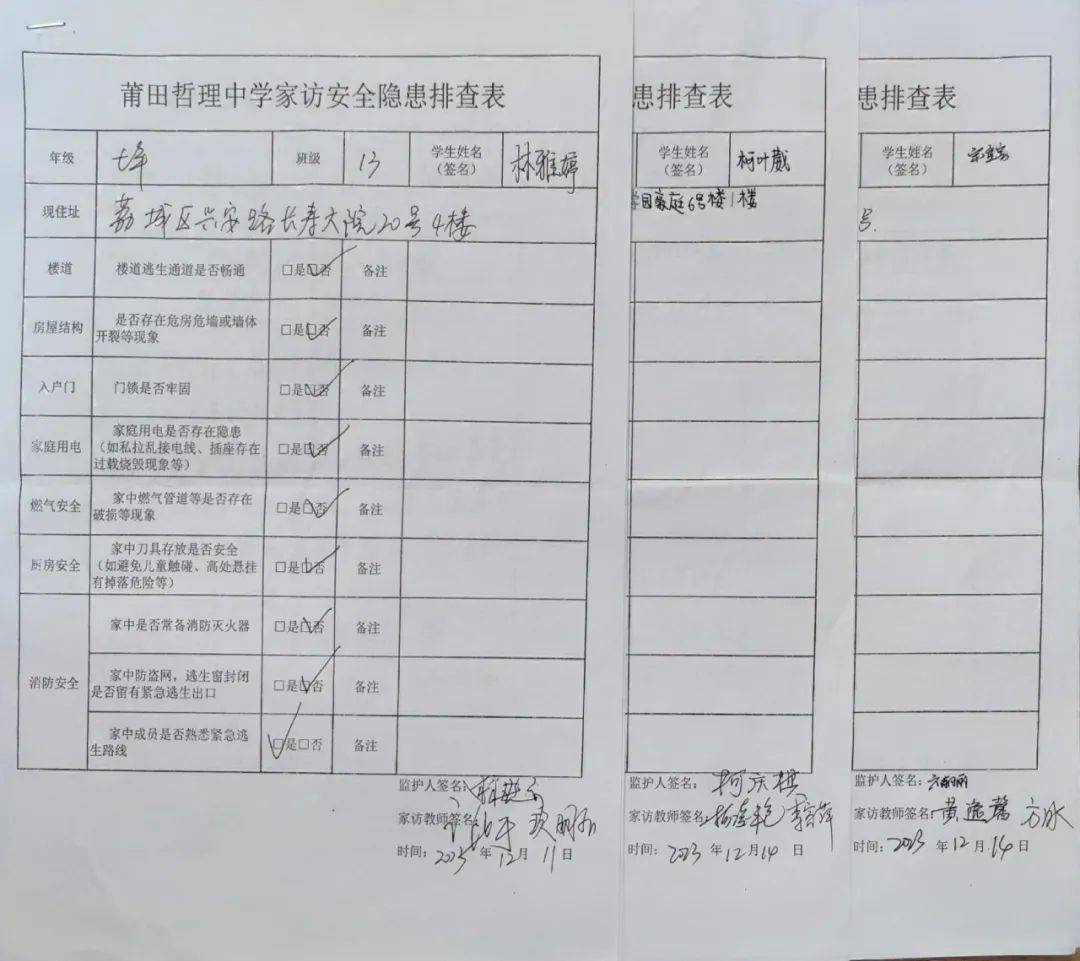 莆田哲理中学家访安全隐患排查表
年级 七年 班级 13 学生姓名（签名） 林雅婷
现住址 荔城区兴安路长寿大院20号4楼
楼道 楼道逃生通道是否畅通 □是□否 备注
房屋结构 是否存在危房危墙或墙体开裂等现象 □是□否 备注
入户门 门锁是否牢固 □是□否 备注
家庭用电 家庭用电是否存在隐患（如私拉乱接电线、插座存在过载烧毁现象等） □是□否 备注
燃气安全 家中燃气管道等是否存在破损等现象 □是□否 备注
厨房安全 家中刀具存放是否安全（如避免儿童触碰、高处悬挂有掉落危险等） □是□否 备注
消防安全 家中是否常备消防灭火器 □是□否 备注
家中防盗网，逃生窗封闭是否留有紧急逃生出口 □是□否 备注
家中成员是否熟悉紧急逃生路线 □是□否 备注
监护人签名：
家访教师签名
时间：2023 年 12 月 11 日
患排查表
学生姓名（签名） 柯叶葳
学园豪庭6号楼1楼
监护人签名： 柯庆棋
家访教师签名：
时间：2023 年 12 月 14 日
患排查表
学生姓名（签名）
号.
监护人签名：
家访教师签名：黄 方冰
时间：2023 年 12 月 14 日